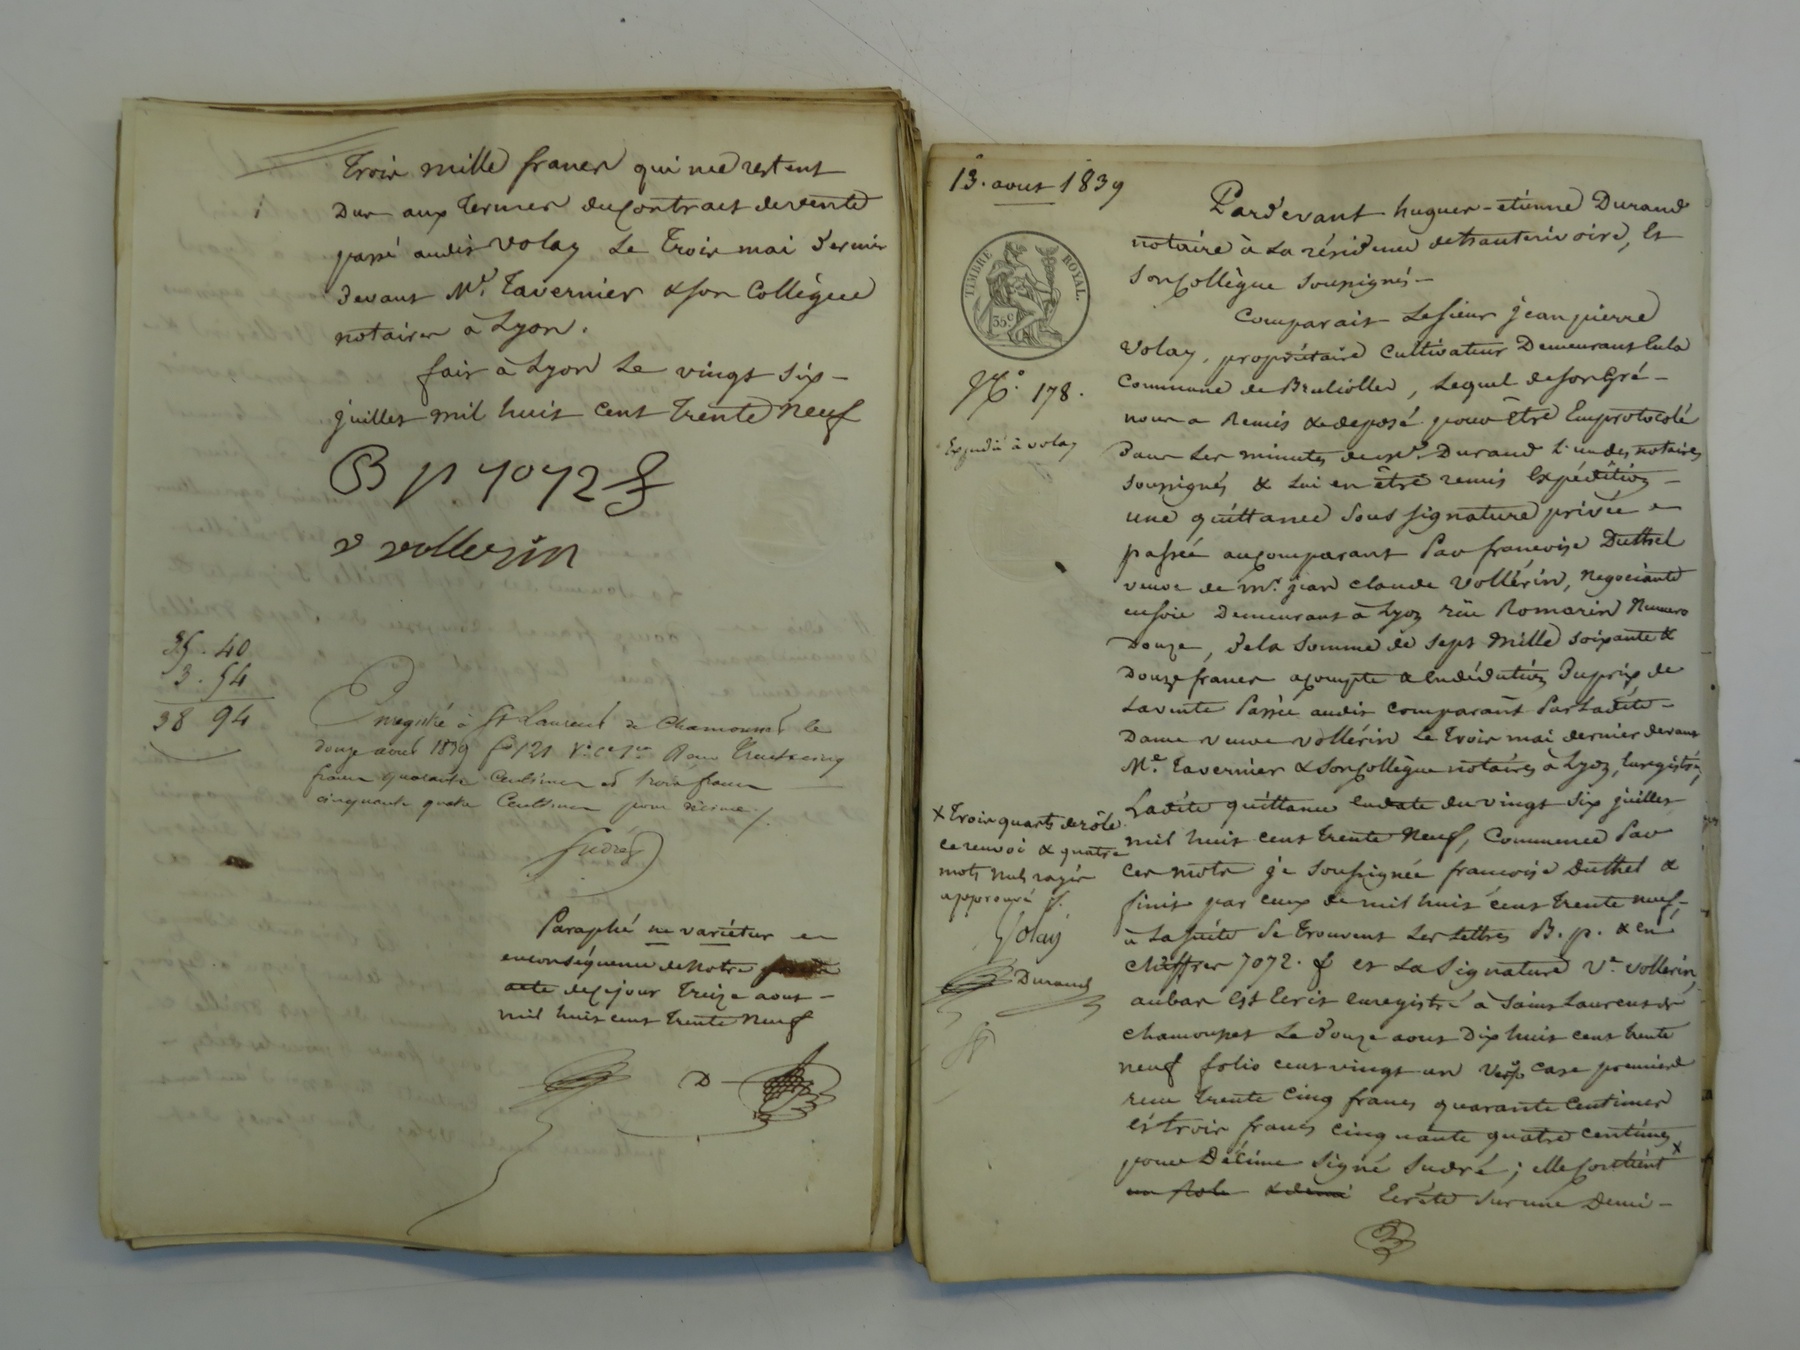 Trois mille francs qui me restent
Dus aux termes du contract de vente
passé audit Volay Le Trois mai Dernier
Devant Mr. Tavernier & son Collègue
notaires à Lyon.
fait à Lyon Le vingt six -
juillet mil huit cent trente neuf
B p 7072 f
v vollerin
35. 40
3. 54
38 94
Enregistré à St Laurent de Chamousset le
douze aout 1839 fo 121 Vo Ce 1re Reçu Trente cinq
francs quarante Centimes et trois francs
cinquante quatre Centimes pour décime ./.
Sudré
Paraphé ne variétur en
en conséquence de Notre
acte de ce jour Treize aout -
mil huit cent trente neuf
D
13. aout 1839
TIMBRE ROYAL.
35c
No. 178.
Expédié à volay
Pardevant hugues-etienne Durand
notaire à La résidence de hauterivoire, Et
Son Collègue Soussignés -
Comparait Le sieur jean pierre
Volay, propriétaire Cultivateur Demeurant En la
Commune de Bruliolles, Lequel de Son Gré -
nous a Remis & déposé pour être Emprotocolé
Dans Les minutes de Me. Durand L'un des notaires
Soussignés & Lui en être remis Expédition -
une quittance Sous Signature privée -
passée au comparant Par françoise Duthel
veuve de mr. jean claude Vollérin, Négociante
en soie Demeurant à Lyon rüe Romarin Numero
Douze, De la Somme de Sept Mille Soixante &
Douze francs acompte & En déduction Du prix de
La vente Passée audit comparant Par Ladite -
Dame veuve vollérin Le Trois mai dernier devant
Me. Tavernier & Son Collègue notaires à Lyon, Enregistré,
Ladite quittance En date du vingt Six juillet
mil huit cent trente Neuf, Commence Par
Ces mots je Soussignée françoise Duthel &
finit par ceux de mil huit cent trente neuf -
à La Suite Se Trouvent Les Lettres B. p. & en
Chiffres 7072. f et La Signature Ve. vollerin,
au bas Est Ecrit Enregistré à Saint Laurent de
chamousset Le Douze aout Dix huit cent trente
neuf folio cent vingt un verso case premiere
reçu trente Cinq francs quarante Centimes
Et trois francs Cinquante quatre centimes
pour Décime Signé Sudré ; elle contient x
un Role & demi Ecrite Sur une Demi -
x Trois quarts de rôle
ce renvoi & quatre
mots nuls rayés
approuvé ./.
Volay
Durand